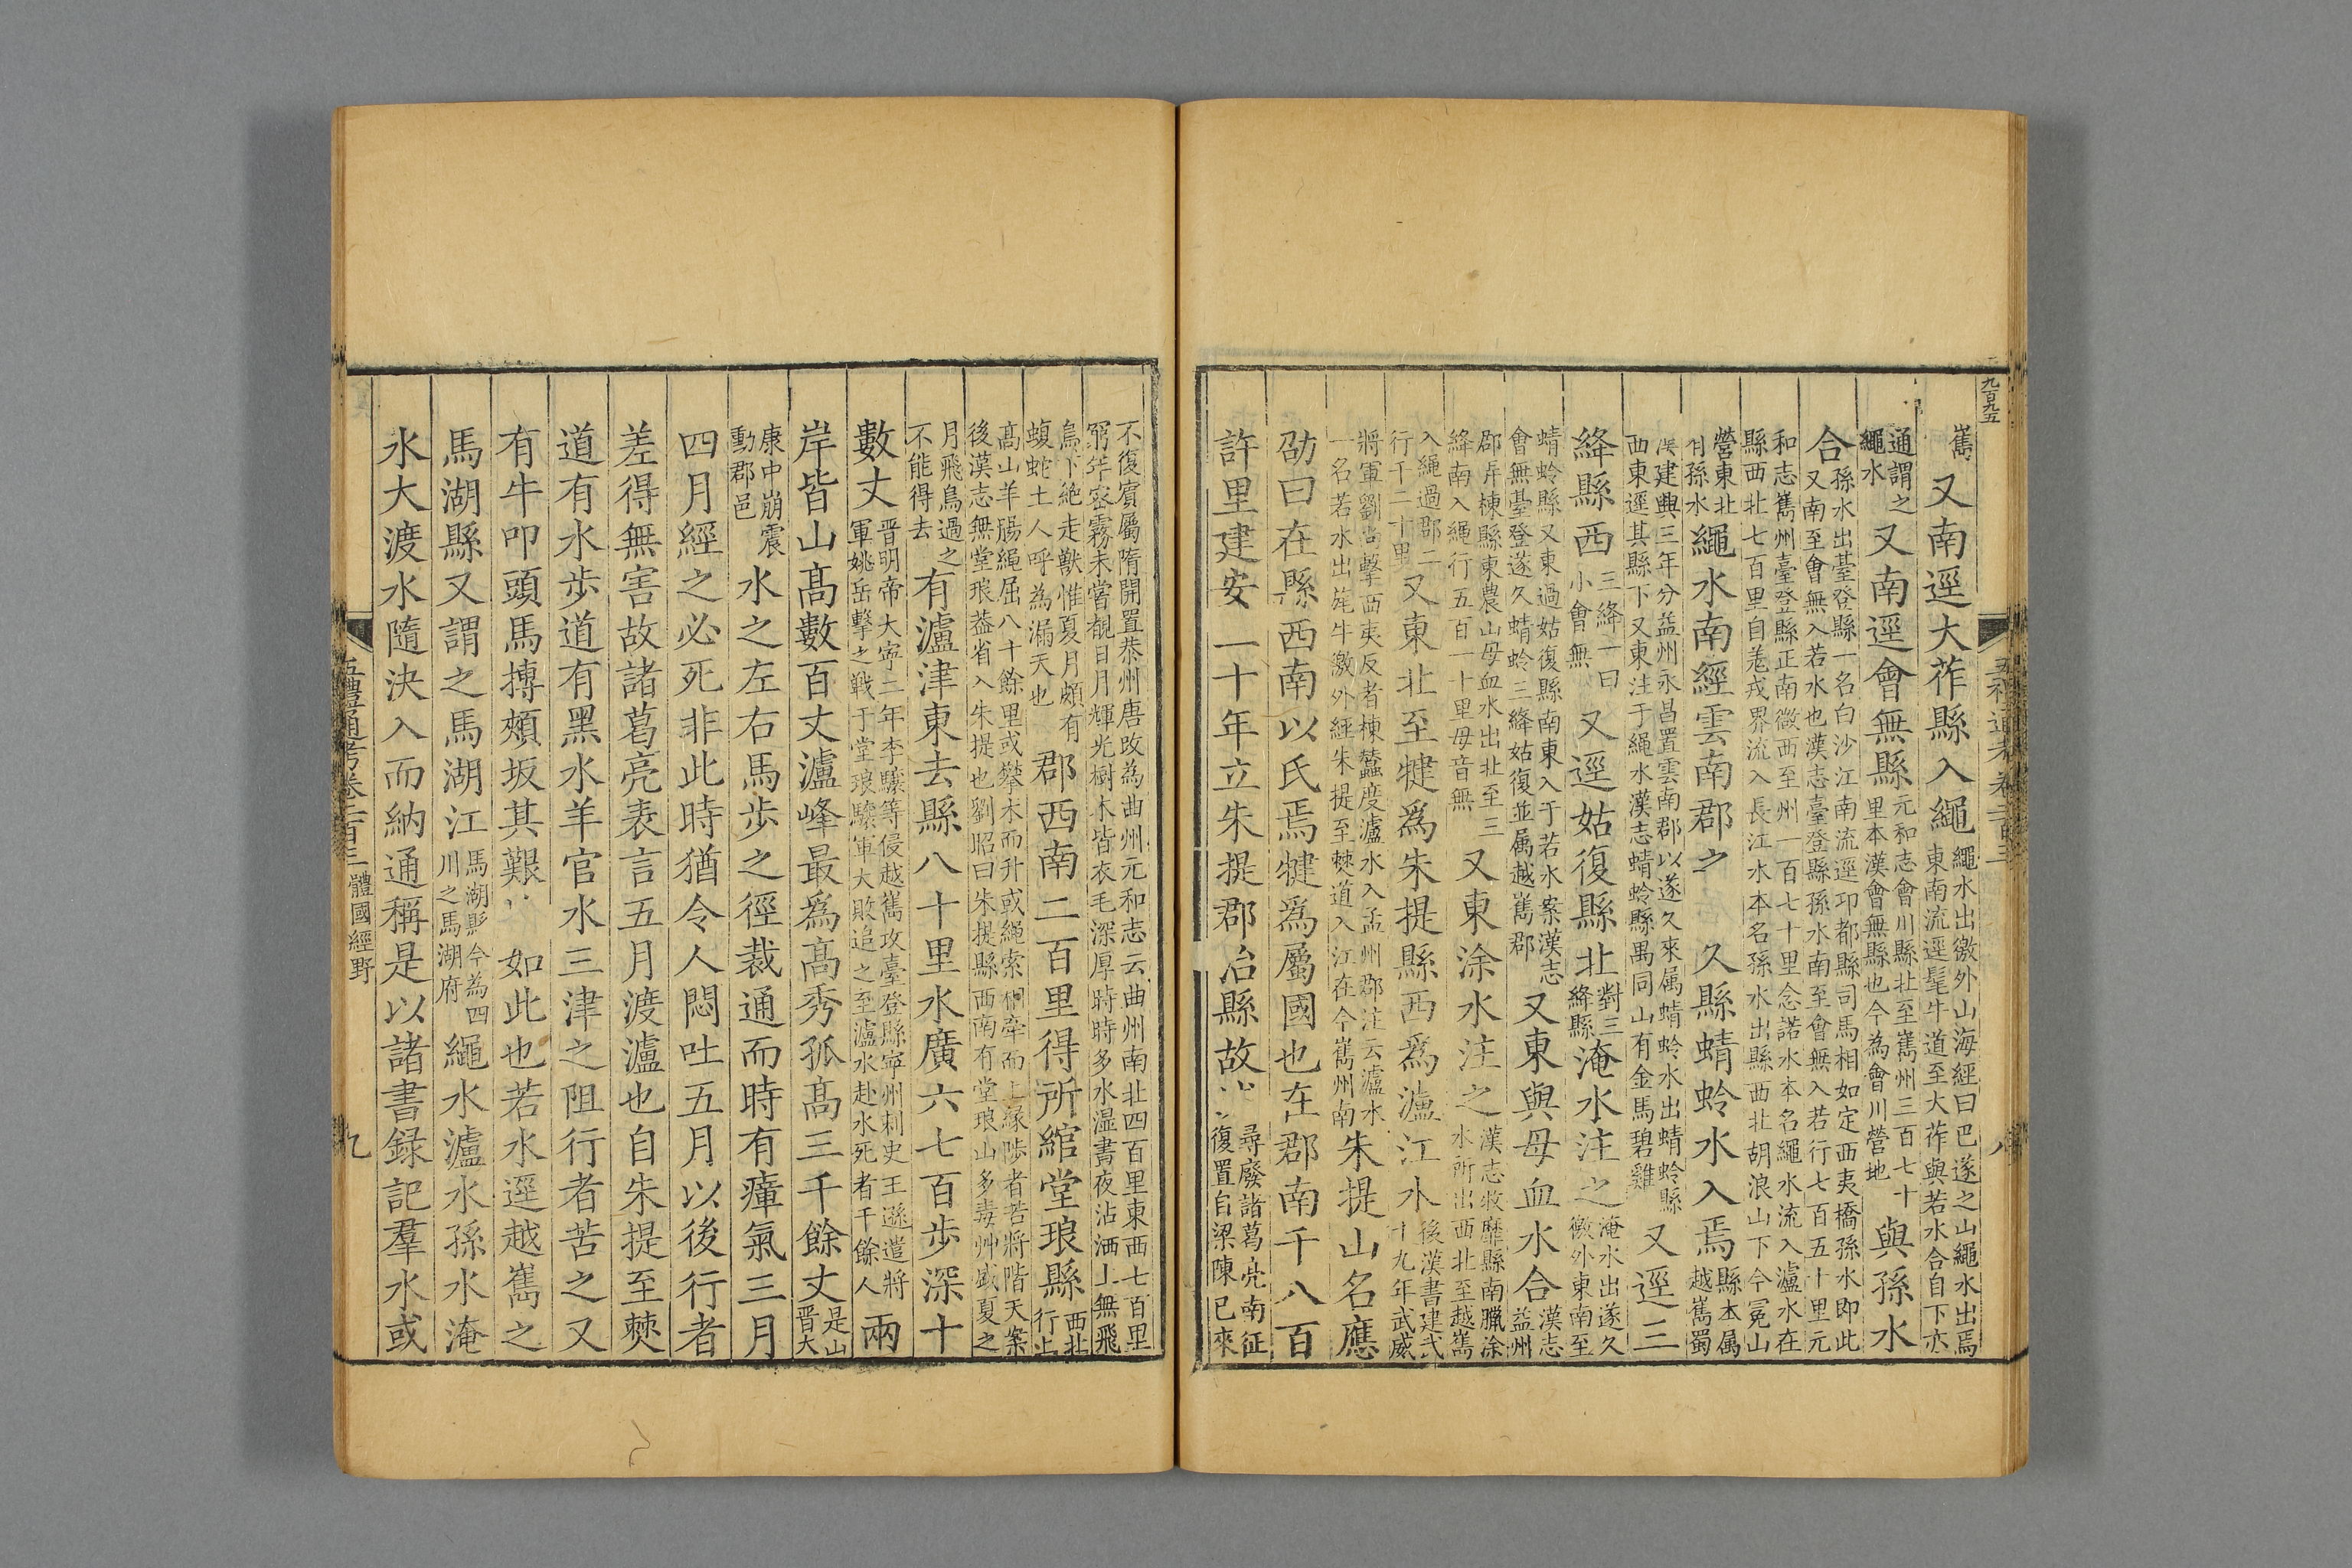 九百九五
嶲又南逕大莋縣入繩繩水出徼外山海經曰巴遂之山繩水出焉東南流逕髦牛道至大莋與若水合自下亦
通謂之繩水又南逕會無縣元和志會川縣北至嶲州三百七十里本漢會無縣也今為會川營地與孫水
合孫水出臺登縣一名白沙江南流逕邛都縣司馬相如定西夷橋孫水即此又南至會無入若水也漢志臺登縣孫水南至會無入若行七百五十里元
和志嶲州臺登縣正南微西至州一百七十里念諾水本名繩水流入瀘水在縣西北七百里自羌戎界流入長江水本名孫水出縣西北胡浪山下今冕山
營東北有孫水繩水南經雲南郡之久縣蜻蛉水入焉縣本属越嶲蜀
漢建興三年分益州永昌置雲南郡以遂久來属蜻蛉水出蜻蛉縣西東逕其縣下又東注于繩水漢志蜻蛉縣禺同山有金馬碧雞又逕三
絳縣西三絳一曰小會無又逕姑復縣北對三絳縣淹水注之淹水出遂久徼外東南至
蜻蛉縣又東過姑復縣南東入于若水案漢志會無臺登遂久蜻蛉三絳姑復並属越嶲郡又東與毋血水合漢志益州
郡弄棟縣東農山毋血水出北至三絳南入繩行五百一十里毋音無又東涂水注之漢志牧靡縣南臘涂水所出西北至越嶲
入繩過郡二行千二十里又東北至犍爲朱提縣西爲瀘江水後漢書建武十九年武威
將軍劉尚擊西夷反者棟蠶度瀘水入孟州郡注云瀘水一名若水出旄牛徼外經朱提至僰道入江在今嶲州南朱提山名應
劭曰在縣西南以氏焉犍爲屬國也在郡南千八百
許里建安二十年立朱提郡治縣故尋廢諸葛亮南征復置自梁陳已來
不復賓屬隋開置恭州唐改為曲州元和志云曲州南北四百里東西七百里窮年密霧未嘗覩日月輝光樹木皆衣毛深厚時時多水湿晝夜沾洒上無飛
鳥下絶走獸惟夏月頗有蝮蛇土人呼為漏天也郡西南二百里得所綰堂琅縣西北行上
高山羊腸繩屈八十餘里或攀木而升或繩索相牽而上縁陟者若將階天案後漢志無堂琅葢省入朱提也劉昭曰朱提縣西南有堂琅山多毒艸盛夏之
月飛鳥過之不能得去有瀘津東去縣八十里水廣六七百步深十
數丈晋明帝大寧二年李驤等侵越嶲攻臺登縣寧州刺史王遜遣將軍姚岳擊之戰于堂琅驤軍大敗追之至瀘水赴水死者千餘人兩
岸皆山高數百丈瀘峰最爲高秀孤高三千餘丈是山晋大
康中崩震動郡邑水之左右馬步之徑裁通而時有瘴氣三月
四月經之必死非此時猶令人悶吐五月以後行者
差得無害故諸葛亮表言五月渡瀘也自朱提至僰
道有水步道有黑水羊官水三津之阻行者苦之又
有牛叩頭馬搏頰坂其艱如此也若水逕越嶲之
馬湖縣又謂之馬湖江馬湖縣今為四川之馬湖府繩水瀘水孫水淹
水大渡水隨決入而納通稱是以諸書錄記羣水或
五禮通考卷二百三 體國經野 九